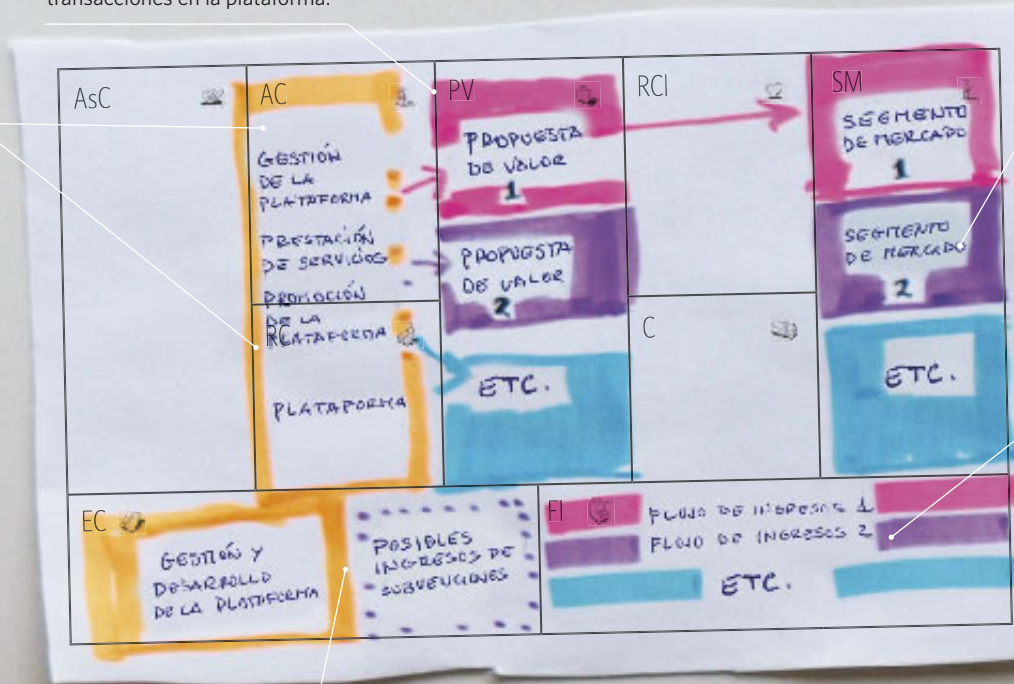 transacciones en la plataforma.
AsC
AC
PV
RCl
SM
GESTIÓN
DE LA
PLATAFORMA
PRESTACIÓN
DE SERVICIOS
PROMOCIÓN
DE LA
PLATAFORMA
PROPUESTA
DE VALOR
1
PROPUESTA
DE VALOR
2
SEGMENTO
DE MERCADO
1
SEGMENTO
DE MERCADO
2
RC
PLATAFORMA
ETC.
C
ETC.
EC
GESTIÓN Y
DESARROLLO
DE LA PLATAFORMA
POSIBLES
INGRESOS DE
SUBVENCIONES
FI
FLUJO DE INGRESOS 1
FLUJO DE INGRESOS 2
ETC.